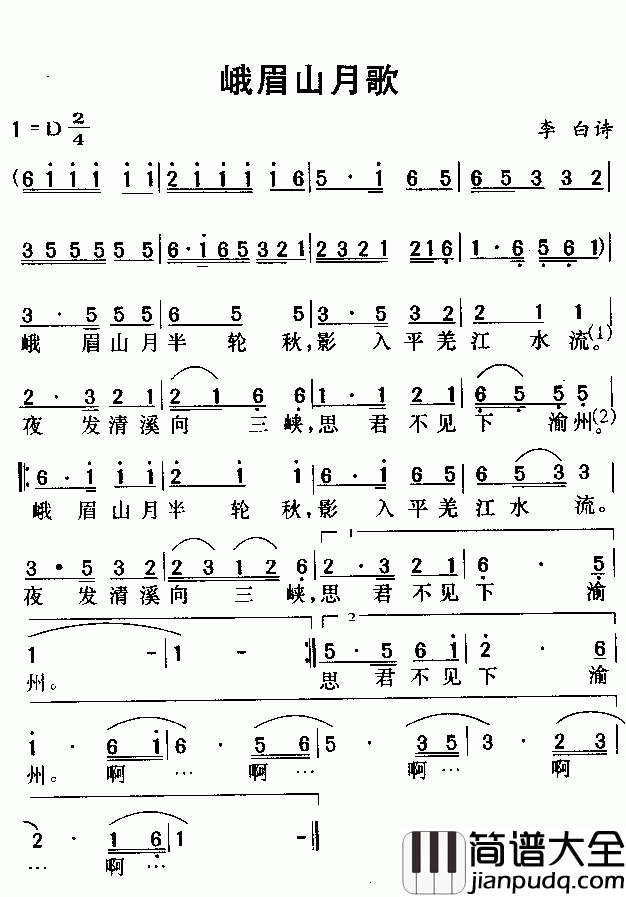 峨眉山月歌
1 = D 2/4
李 白诗
(6 1 1 1 1 1 | 2 1 1 1 1 6 | 5 · 1 6 5 | 6 5 3 3 2 |
3 5 5 5 5 5 | 6 · 1 6 5 3 2 1 | 2 3 2 1 2 1 6 | 1 · 6 5 6 1) |
3 · 5 5 5 | 6 5 5 | 3 · 5 3 2 | 2 1 1 |
峨 眉山月半 轮 秋,影 入平羌江 水 流。(1)
2 · 3 2 1 | 2 1 6 6 | 1 · 2 2 1 | 6 5 5 5 |
夜 发清溪向 三峡,思君 不见下 渝州。(2)
6 · 1 1 1 | 2 1 1 | 6 · 1 6 5 | 6 5 3 3 |
峨 眉山月半 轮 秋,影 入平羌江 水 流。
1 2 · 3 2 1 | 6 · 5
3 · 5 3 2 | 2 3 1 2 6 |
夜 发清溪向 三 峡,思君 不见下 渝
2
1 - | 1 - :| 5 · 5 6 1 | 2 · 6 |
州。 思君 不见下 渝
1 · 6 1 | 1 · 5 6 | 1 · 3 5 | 3 · 2 3 |
州。 啊 … 啊 … 啊 … 啊
2 · 1 6 | 1 - ‖
… 啊 …
简谱大全
jianpudq.com